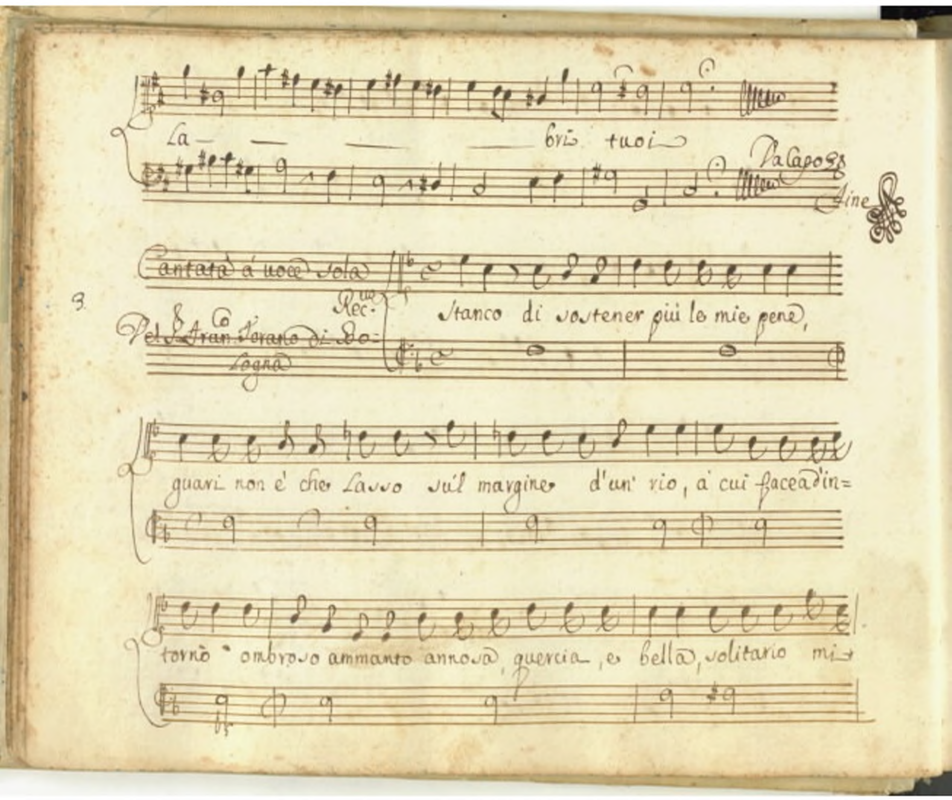 La - bri tuoi
Da Capo
Fine
Cantata à voce sola
3.
Rec.vo
Stanco di sostener più le mie pene,
Del S.r Fran.co Torano di Bo=
logna
guari non è che Lasso su'l margine d'un' rio, à cui facea d'in=
torno ombroso ammanto annosa quercia, e bella, solitario mi